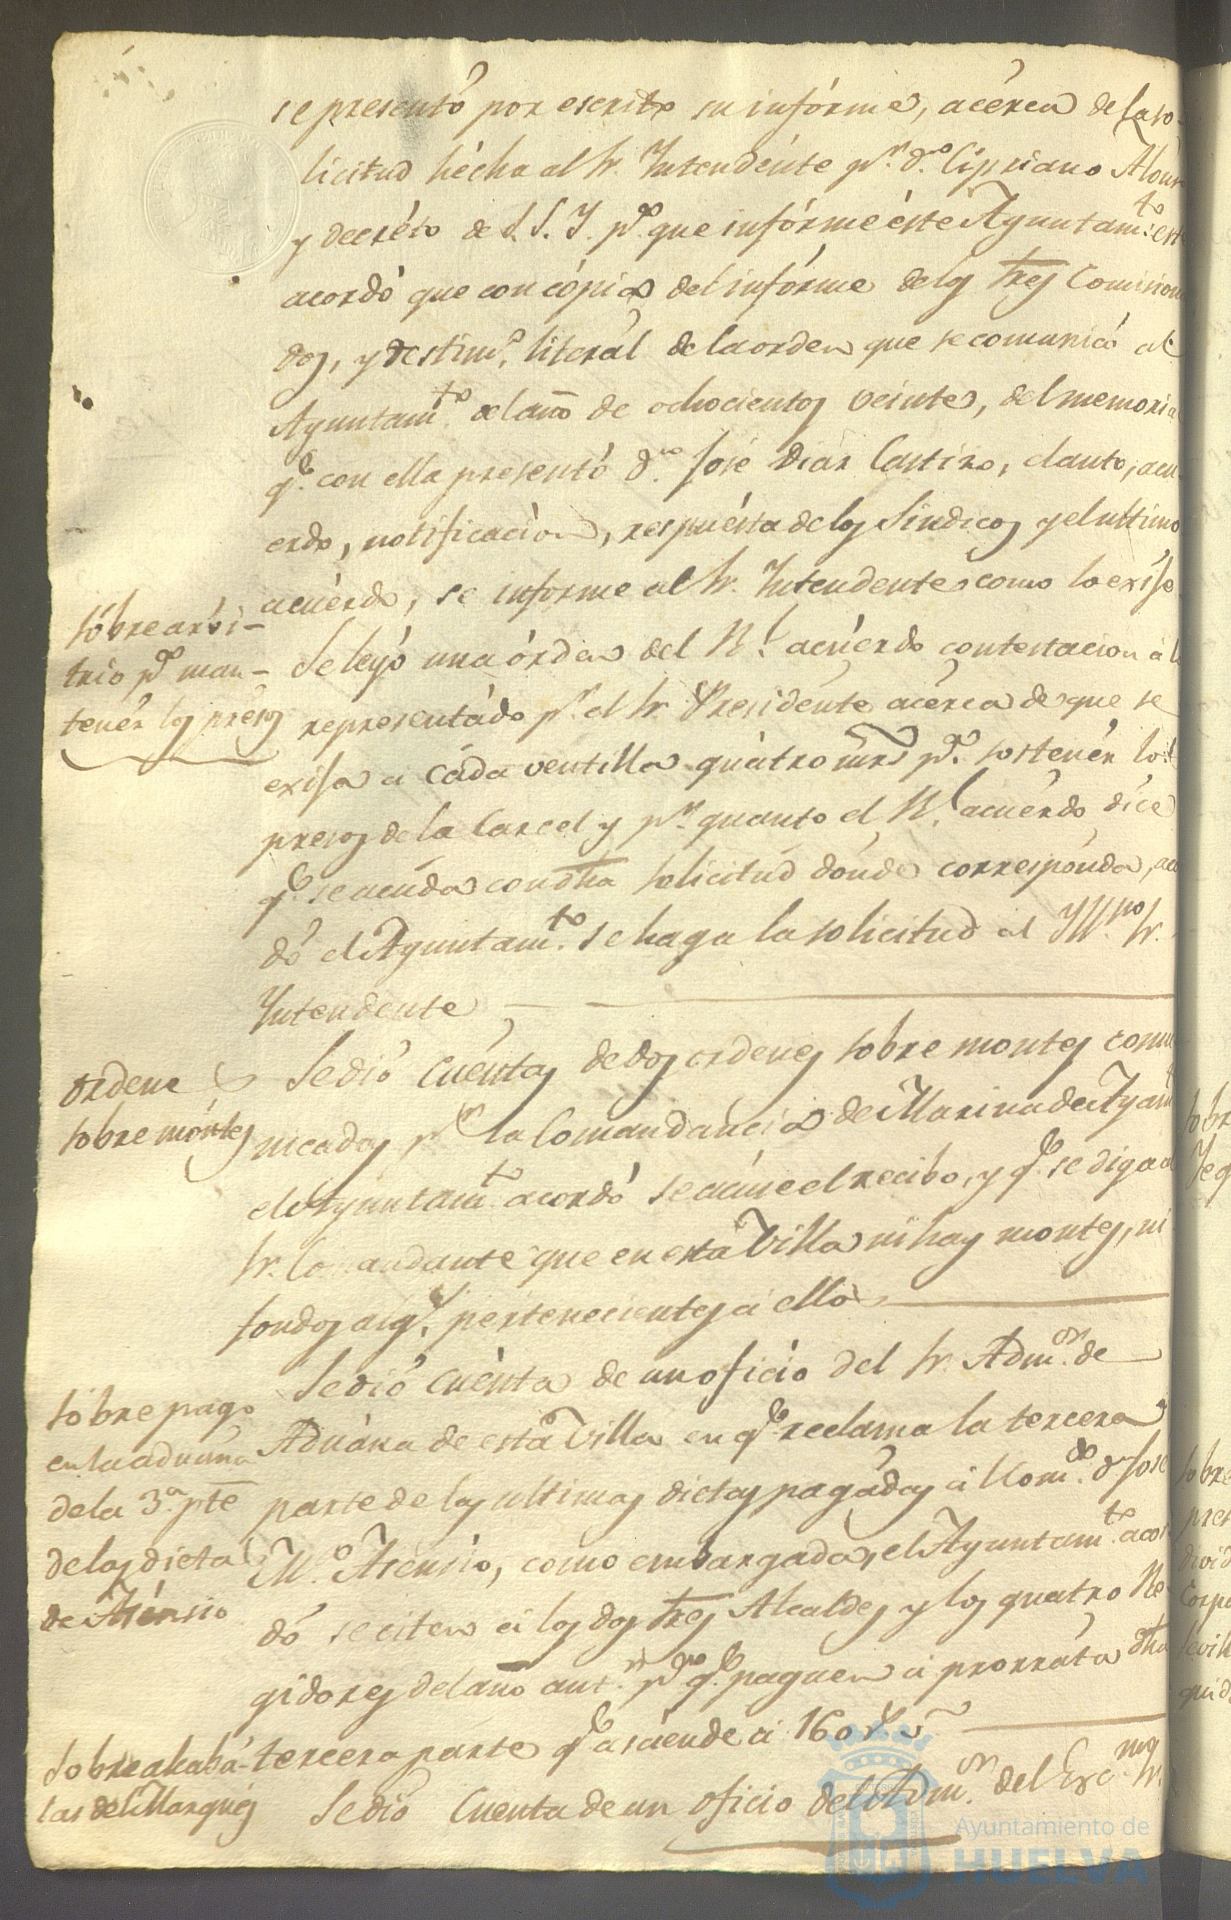 se presentó por escrito su informe, acerca de la so-
licitud hécha al Sr. Intendénte pr. dn. Cipriano Alons
y decréto de S. S. Y. pa. que infórme éste Ayuntamto.
acordó que con cópia del infórme de los tres Comision
dos, y testimo. literál de la orden que se comunicó al
Ayuntamto. del año de ochocientos veinte, del memoria
qe. con ella presentó dn. José Diaz Castizo, el auto, acu
erdo, notificacion, respuésta de los Sindicos y el ultimo
acuérdo, se informe al Sr. Intendente como lo exije
Sóbre arbi-
trio pa. man-
tenér los présos
Se leyó una órden del Rl. acuérdo contestacion á l
representádo pr. el Sr. Presidénte acérca de que se
exija a cáda ventilla quátro mrs. pa. sostenér los
presos de la Carcel y pr. quanto el Rl. acuérdo díce
qe. se acúda con dha solicitud dónde correspónda, aco
dó el Ayuntamto. se haga la solicitud al Yllmo. Sr.
Intendente
Ordene
sobre móntes
Se dió cuéntas de dos ordenes sobre montes comu
nicadas pr. la Comandancia de Marina de Ayam
el Ayuntamto. acordó se acúse el recibo, y qe. se diga a
Sr. Comandante que en está Villa ni hay montes, ni
fondos algs. pertenecientes á ello
Sóbre pago
en la aduana
de la 3.a pte
de las dieta
de Asénsio
Se dió cuénta de un oficio del Sr. Admor. de
Aduána de está Villa en qe. reclama la tercera
parte de las ultimas dietas pagádas á Comdo. dn. José
M.a Asénsio, como embargada, el Ayuntamto. acor
dó se citen á los dos tres Alcaldes y los quatro Re
gidores del año antr. pa. qe. paguen á prorráta dha
tercera parte qe. asciende á 160 rs. vn
Sobre alcabá-
las del Marqués
Se dió Cuenta de un oficio del Admor. del Excmo. Sr.
Ayuntamiento de
HUELVA